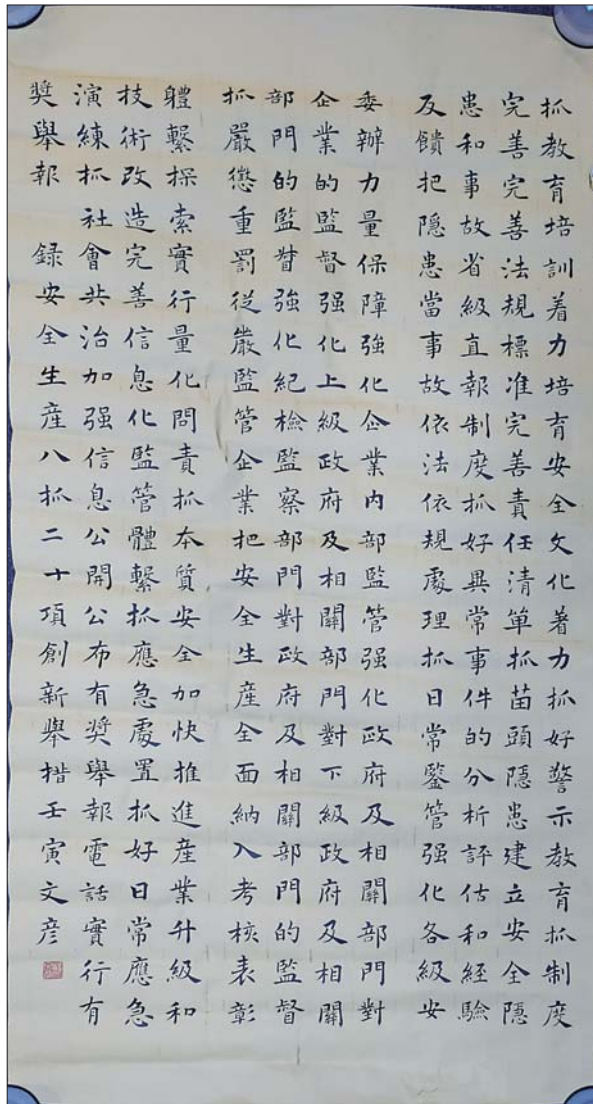 抓教育培訓着力培育安全文化著力抓好警示教育抓制度
完善完善法規標准完善責任清單抓苗頭隱患建立安全隱
患和事故省級直報制度抓好異常事件的分析評估和經驗
反饋把隱患當事故依法依規處理抓日常鑒管强化各級安
委辦力量保障強化企業内部監管强化政府及相關部門對
企業的監督强化上級政府及相關部門對下級政府及相關
部門的監督強化紀檢監察部門對政府及相關部門的監督
抓嚴懲重罰從嚴監管企業把安全生産全面納入考核表彰
軆繫探索實行量化問責抓本質安全加快推進産業升級和
技術改造完善信息化監管體繫抓應急處置抓好日常應急
演練抓社會共治加强信息公開公布有奬舉報電話實行有
奬舉報 録安全生産八抓二十項創新舉措壬寅文彦